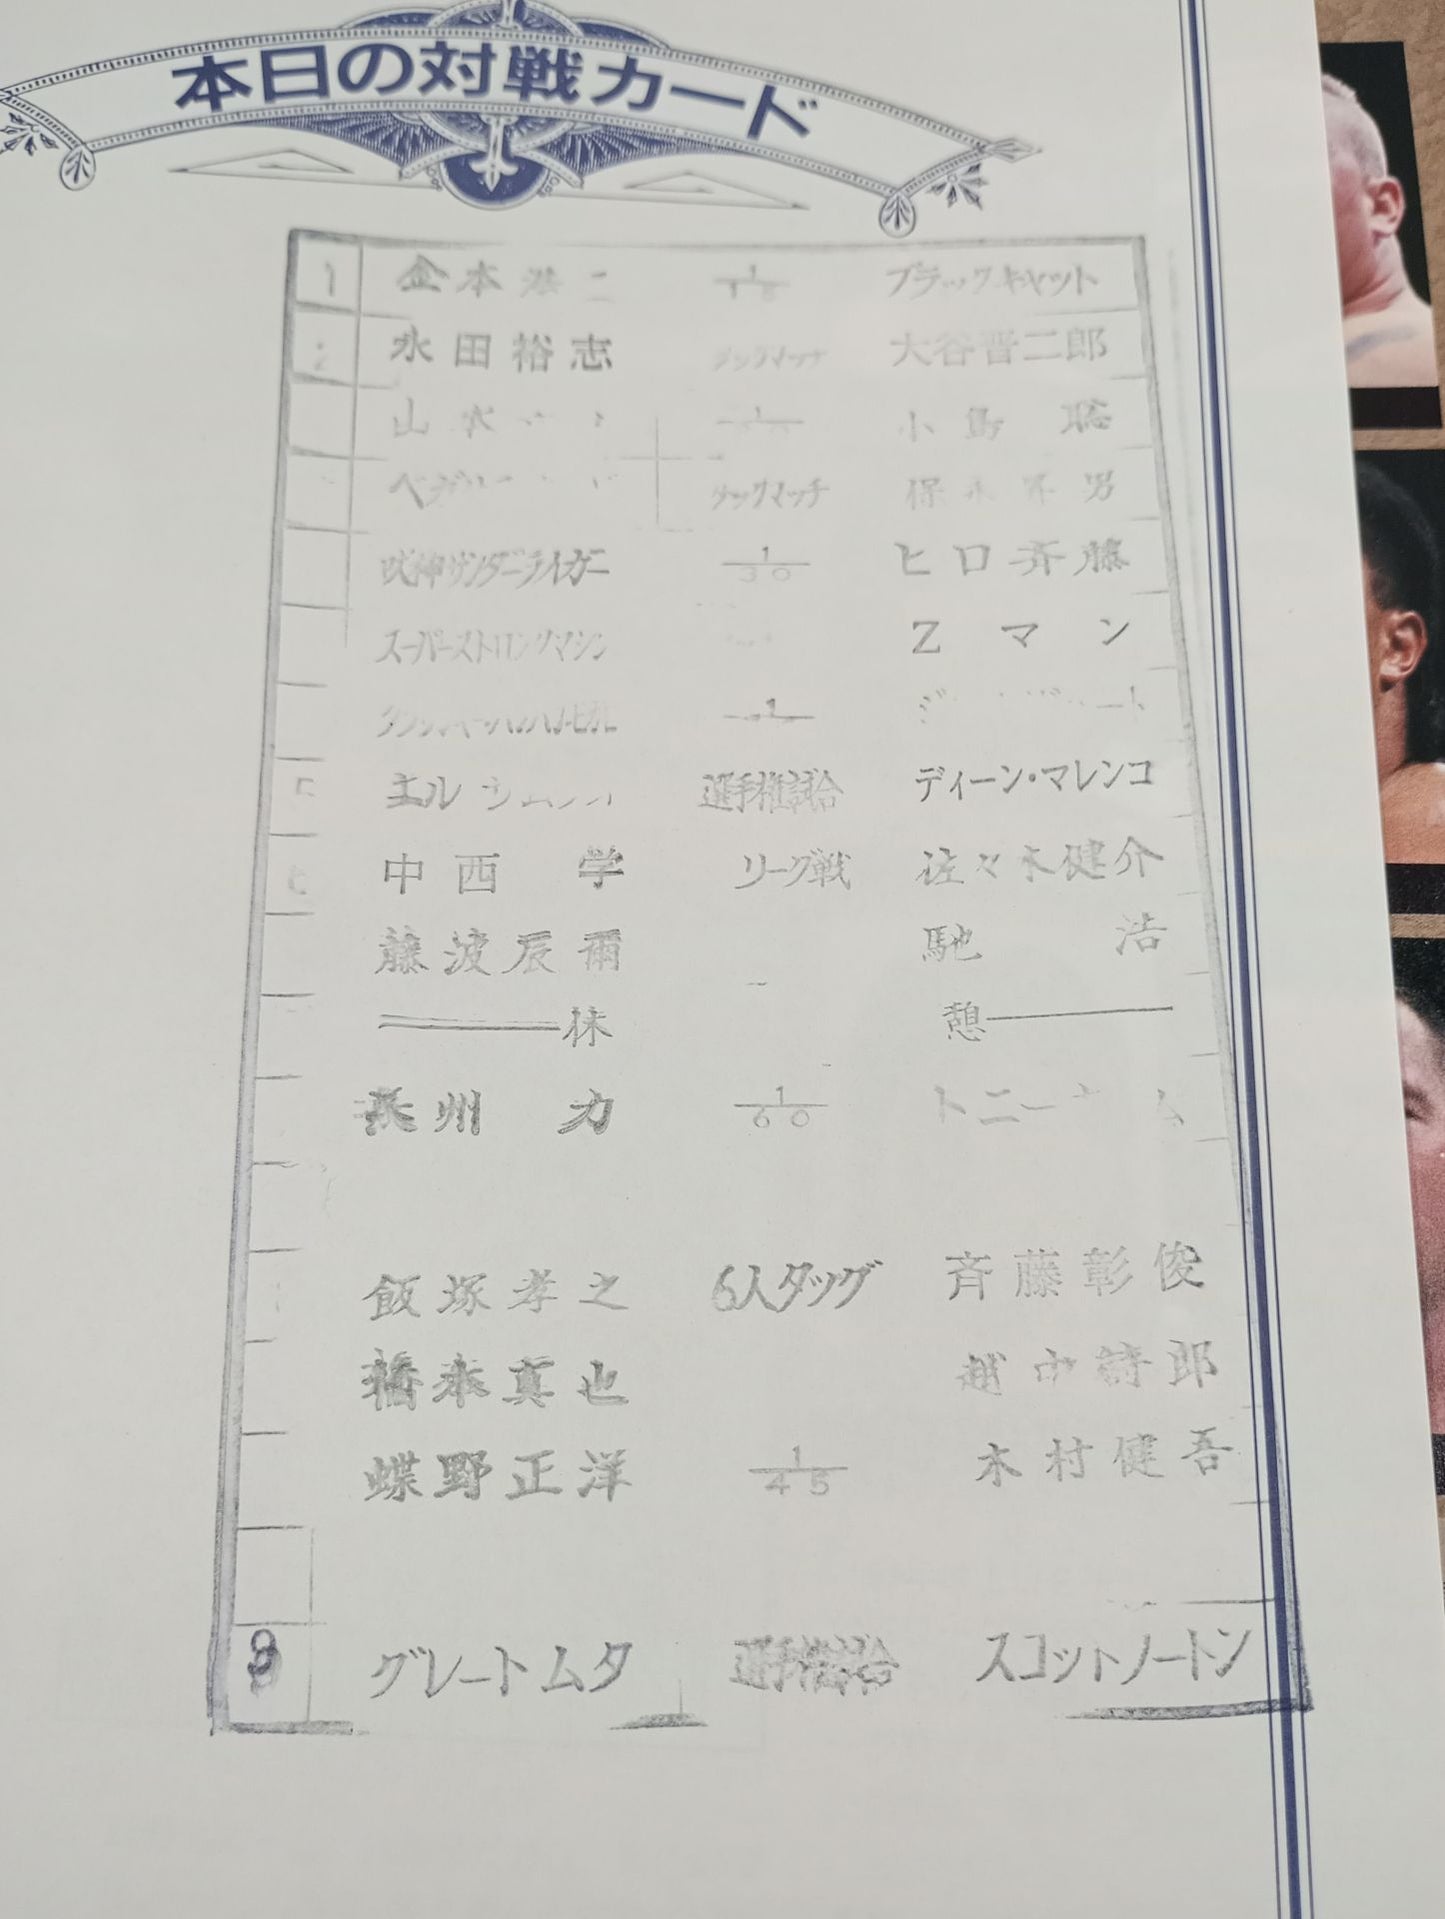 本日の対戦カード
1 金本浩二 ブラックキャット
永田裕志 タッグマッチ 大谷晋二郎
山本 小島 聡
タッグマッチ 保永昇男
獣神サンダーライガー 1/30 ヒロ斉藤
スーパーストロングマシン Zマン
1
エル サムライ 選手権試合 ディーン・マレンコ
中西 学 リーグ戦 佐々木健介
藤波辰爾 馳 浩
休 憩
長州 力 1/60 トニー
飯塚孝之 6人タッグ 斉藤彰俊
橋本真也 越中詩郎
蝶野正洋 1/45 木村健吾
グレートムタ 選手権試合 スコットノートン